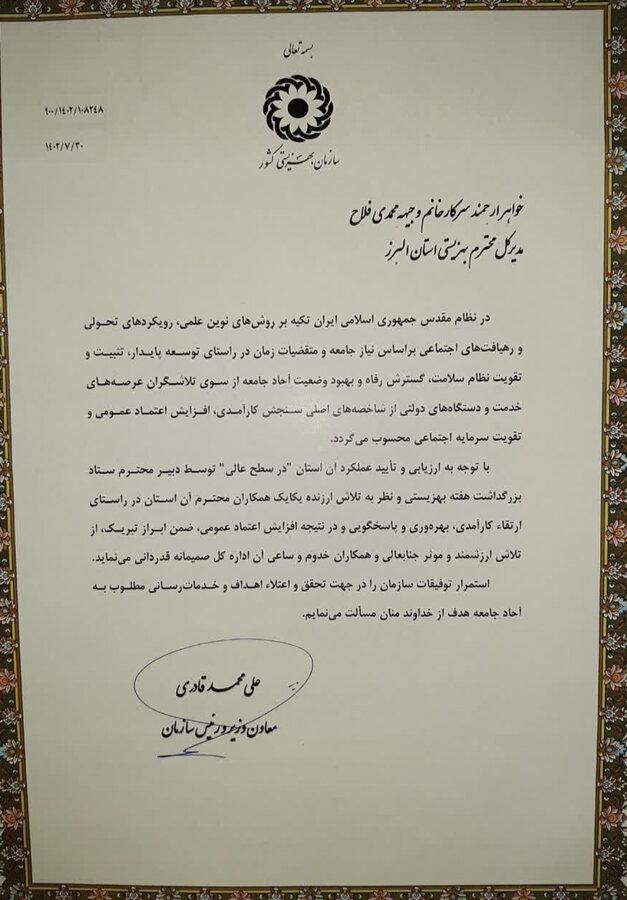 بسمه تعالی
۹۰۰/۱۴۰۲/۱۰۸۲۴۸
۱۴۰۲/۷/۳۰
سازمان بهزیستی کشور
خواهر ارجمند سرکار خانم وجیهه محمدی فلاح
مدیر کل محترم بهزیستی استان البرز
در نظام مقدس جمهوری اسلامی ایران تکیه بر روش‌های نوین علمی، رویکردهای تحولی
و رهیافت‌های اجتماعی براساس نیاز جامعه و متقضیات زمان در راستای توسعه پایدار، تثبیت و
تقویت نظام سلامت، گسترش رفاه و بهبود وضعیت آحاد جامعه از سوی تلاشگران عرصه‌های
خدمت و دستگاه‌های دولتی از شاخصه‌های اصلی سنجش کارآمدی، افزایش اعتماد عمومی و
تقویت سرمایه اجتماعی محسوب می‌گردد.
با توجه به ارزیابی و تأیید عملکرد آن استان "در سطح عالی" توسط دبیر محترم ستاد
بزرگداشت هفته بهزیستی و نظر به تلاش ارزنده یکایک همکاران محترم آن استان در راستای
ارتقاء کارآمدی، بهره‌وری و پاسخگویی و در نتیجه افزایش اعتماد عمومی، ضمن ابراز تبریک، از
تلاش ارزشمند و موثر جنابعالی و همکاران خدوم و ساعی آن اداره کل صمیمانه قدردانی می‌نماید.
استمرار توفیقات سازمان را در جهت تحقق و اعتلاء اهداف و خدمات‌رسانی مطلوب به
آحاد جامعه هدف از خداوند منان مسألت می‌نمایم.
علی محمد قادری
معاون وزیر و رئیس سازمان